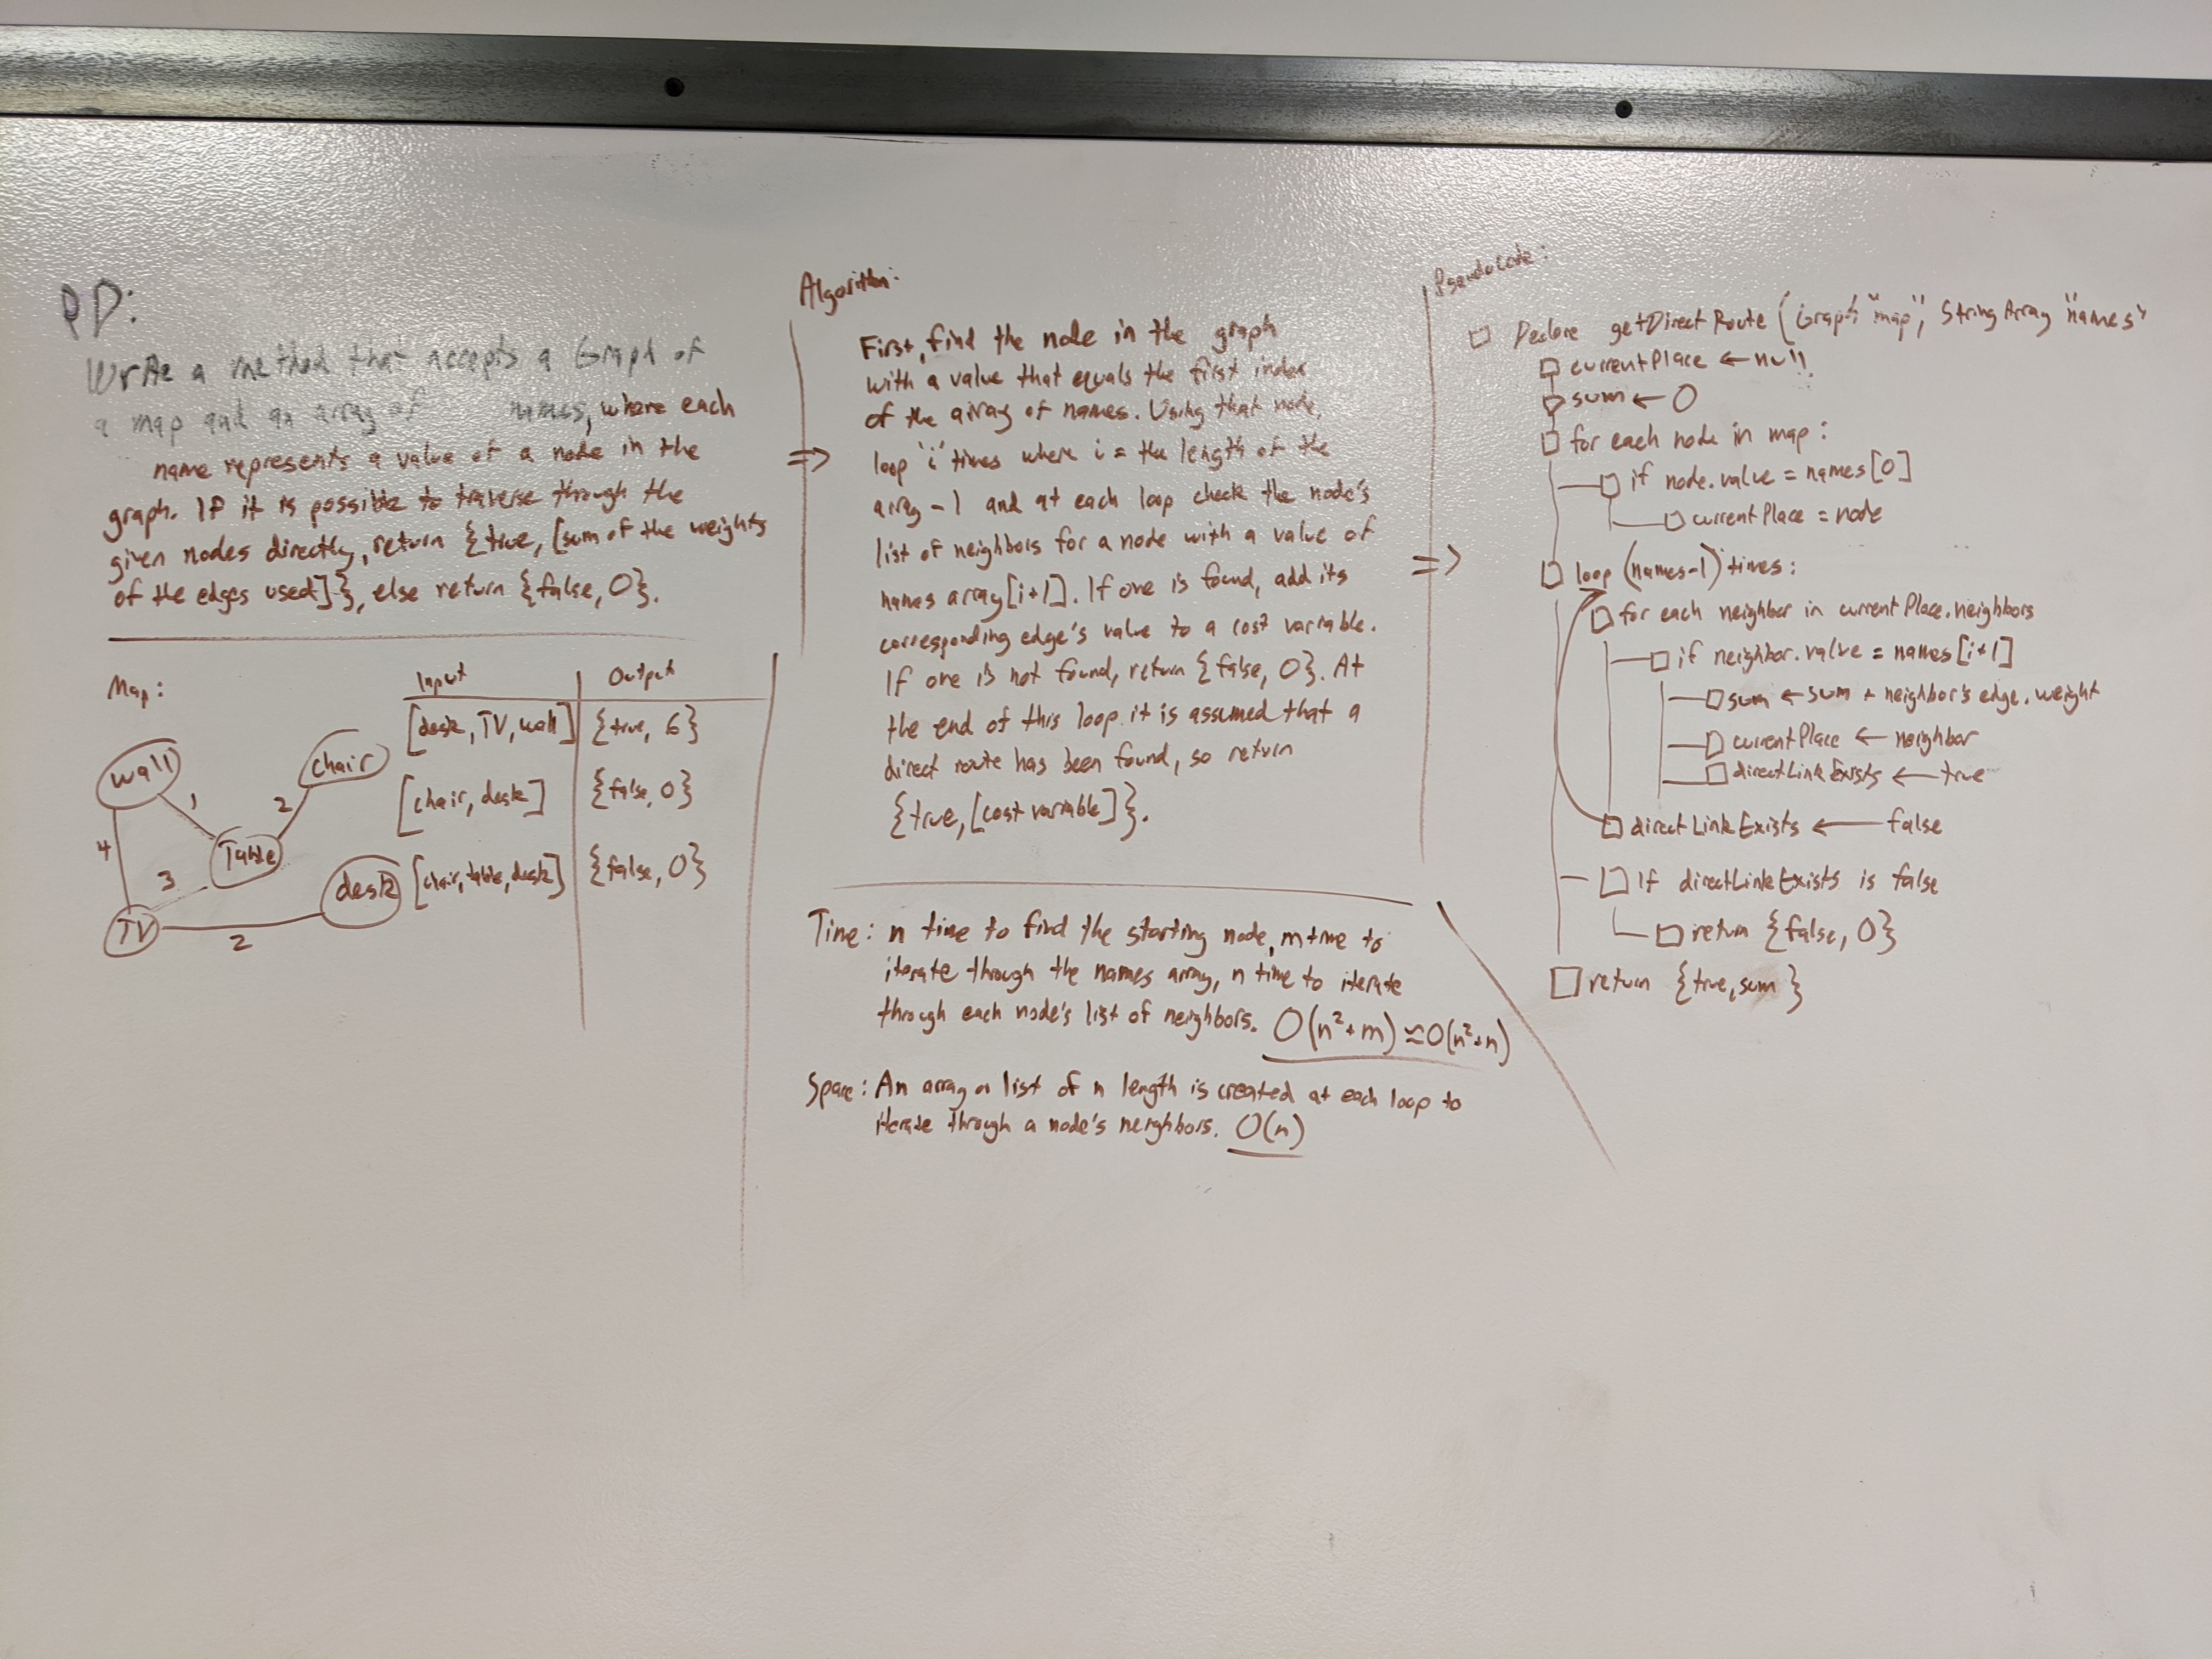 PD:
Write a method that accepts a Graph of
a map and an array of names, where each
name represents a value of a node in the
graph. If it is possible to traverse through the
given nodes directly, return {true, [sum of the weights
of the edges used]}, else return {false, 0}.
Map:
Input
Output
[desk, TV, wall]
{true, 6}
[chair, desk]
{false, 0}
[chair, table, desk]
{false, 0}
wall
chair
1
2
4
Table
3
desk
TV
2
Algorithm:
First, find the node in the graph
with a value that equals the first index
of the array of names. Using that node,
loop 'i' times where i = the length of the
array - 1 and at each loop check the node's
list of neighbors for a node with a value of
names array[i+1]. If one is found, add its
corresponding edge's value to a cost variable.
If one is not found, return {false, 0}. At
the end of this loop it is assumed that a
direct route has been found, so return
{true, [cost variable]}.
Time: n time to find the starting node, m time to
iterate through the names array, n time to iterate
through each node's list of neighbors. O(n²+m) ≈ O(n²+n)
Space: An array or list of n length is created at each loop to
iterate through a node's neighbors. O(n)
Pseudocode:
Declare getDirectRoute (Graph "map", StringArray "names"
currentPlace ← null
sum ← 0
for each node in map:
if node.value = names[0]
currentPlace = node
loop (names-1) times:
for each neighbor in currentPlace.neighbors
if neighbor.value = names[i+1]
sum ← sum + neighbor's edge.weight
currentPlace ← neighbor
directLinkExists ← true
directLinkExists ← false
If directLinkExists is false
return {false, 0}
return {true, sum}